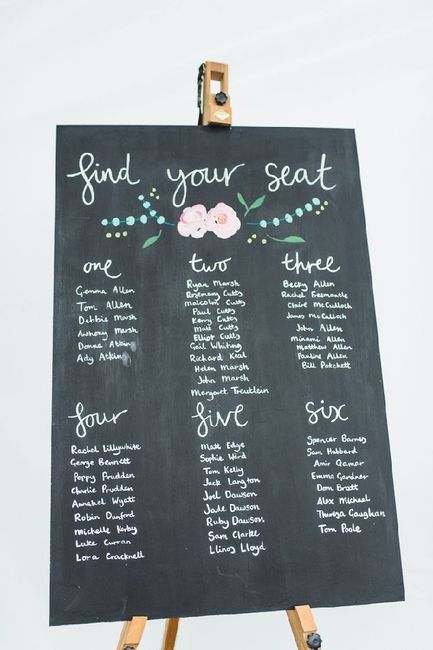 find your seat
one
Gemma Allen
Tom Allen
Debbie Marsh
Anthony Marsh
Donna Atkins
Ady Atkin
two
Ryan Marsh
Rosemary Cutts
Malcolm Cutts
Paul Cutts
Kerry Cutts
Matt Cutts
Elliot Cutts
Gail Whiting
Richard Keal
Helen Marsh
John Marsh
Margaret Treutlein
three
Becky Allen
Rachel Freemantle
Claire McCulloch
James McCulloch
John Allen
Minami Allen
Matthew Allen
Pauline Allen
Bill Patchett
four
Rachel Lillywhite
George Bennett
Poppy Prudden
Charlie Prudden
Annabel Wyatt
Robin Dunford
Michelle Kirby
Luke Curran
Lora Cracknell
five
Matt Edge
Sophie Ward
Tom Kelly
Jack Langton
Joel Dawson
Jade Dawson
Ruby Dawson
Sam Clarke
Llinos Lloyd
six
Spencer Barnes
Sam Hubbard
Amir Qamar
Emma Gardner
Dom Bratt
Alex Micheal
Theresa Gaughan
Tom Poole